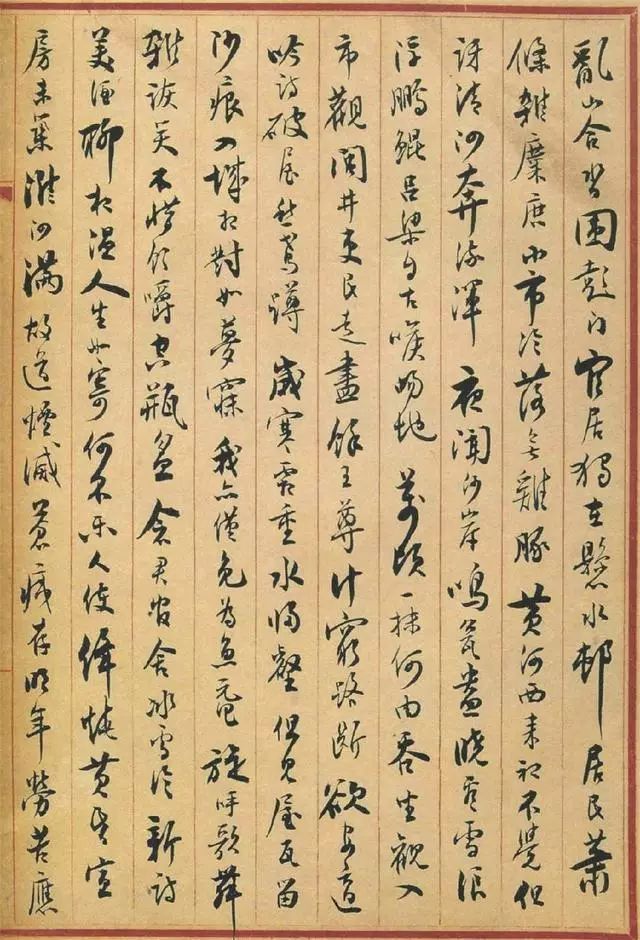 亂山合沓圍彭門官居獨在懸水邨居民蕭
條雜麋鹿小市冷落無雞豚黃河西来初不覺但
訝清泗奔流渾夜聞沙岸鳴瓮盎曉看雪浪
浮鵬鯤呂梁自古喉吻地萬頃一抹何由吞坐觀入
市觀閭井吏民走盡餘王尊計窮路斷欲安適
吟詩破屋愁鳶蹲歲寒霜重水歸壑但見屋瓦留
沙痕入城相對如夢寐我亦僅免為魚黿旋呼歌舞
雜詼笑不惜飲嚼空瓶盆念君官舍冰雪冷新詩
美酒聊相温人生如寄何不樂任使絳燒黃昏宣
房未築淮泗滿故道堙滅蒼痍存明年勞苦應